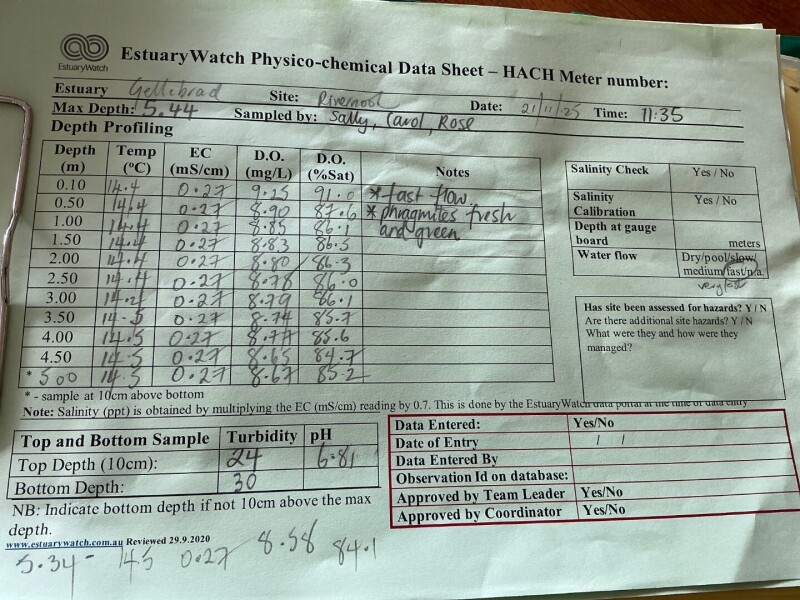 EstuaryWatch
EstuaryWatch Physico-chemical Data Sheet – HACH Meter number:
Estuary Gellebrad Site: Rivernook Date: 21/11/25 Time: 11:35
Max Depth: 5.44 Sampled by: Sally, Carol, Rose
Depth Profiling
Depth (m) Temp (°C) EC (mS/cm) D.O. (mg/L) D.O. (%Sat) Notes
0.10 14.4 0.27 9.25 91.0 * fast flow
0.50 14.4 0.27 8.90 87.6 * phragmites fresh
1.00 14.4 0.27 8.85 86.1 and green
1.50 14.4 0.27 8.83 86.5
2.00 14.4 0.27 8.80 86.3
2.50 14.4 0.27 8.78 86.0
3.00 14.4 0.27 8.79 86.1
3.50 14.5 0.27 8.74 85.7
4.00 14.5 0.27 8.77 85.6
4.50 14.5 0.27 8.65 84.7
* 5.00 14.5 0.27 8.67 85.2
* - sample at 10cm above bottom
Note: Salinity (ppt) is obtained by multiplying the EC (mS/cm) reading by 0.7. This is done by the EstuaryWatch data portal at the time of data entry
Salinity Check Yes / No
Salinity Calibration Yes / No
Depth at gauge board meters
Water flow Dry/pool/slow/
medium/fast/n/a
very fast
Has site been assessed for hazards? Y / N
Are there additional site hazards? Y / N
What were they and how were they
managed?
Top and Bottom Sample Turbidity pH
Top Depth (10cm): 24 6.81
Bottom Depth: 30
NB: Indicate bottom depth if not 10cm above the max
depth.
www.estuarywatch.com.au Reviewed 29.9.2020
5.34 - 14.5 0.27 8.58 84.1
Data Entered: Yes/No
Date of Entry / /
Data Entered By
Observation Id on database:
Approved by Team Leader Yes/No
Approved by Coordinator Yes/No